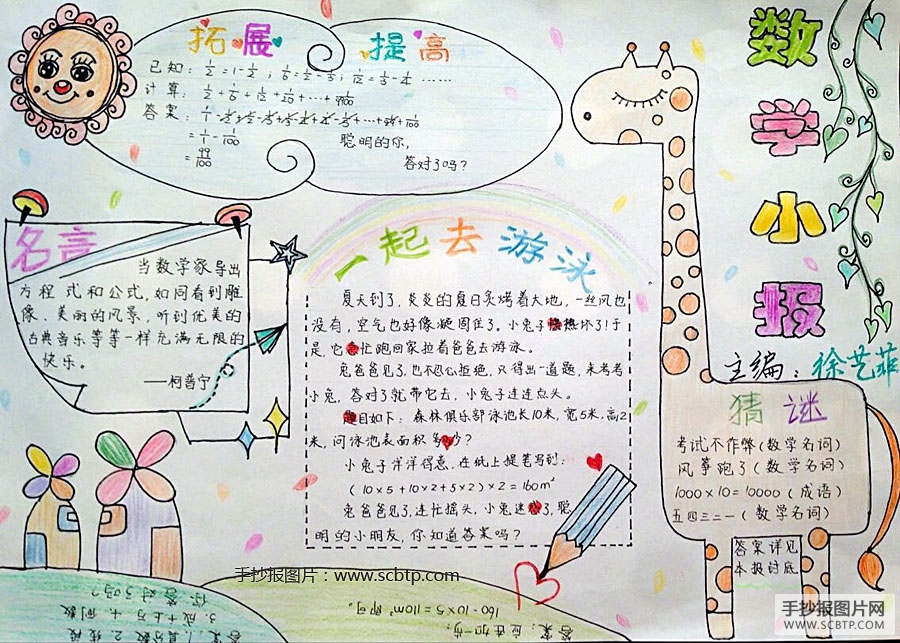 拓展 提高
已知：1/2=1-1/2；1/6=1/2-1/3；1/12=1/3-1/4 ……
计算：1/2+1/6+1/12+1/20+…+1/9900
答案：
=1/1-1/100
=99/100
聪明的你，
答对了吗？
数学小报
主编：徐艺菲
名言
当数学家导出
方程式和公式，如同看到雕
像、美丽的风景，听到优美的
古典音乐等等一样充满无限的
快乐。
——柯普宁
一起去游泳
夏天到了，炎炎的夏日炙烤着大地，一丝风也
没有，空气也好像凝固住了。小兔子热坏了！于
是，它急忙跑回家拉着爸爸去游泳。
兔爸爸见了，也不忍心拒绝，只得出一道题，来考考
小兔，答对了就带它去，小兔子连连点头。
题目如下：森林俱乐部泳池长10米，宽5米，高2
米，问泳池表面积多少？
小兔子洋洋得意，在纸上提笔写到：
（10×5+10×2+5×2）×2=160m²
兔爸爸见了，连忙摇头，小兔迷惑了，聪
明的小朋友，你知道答案吗？
猜谜
考试不作弊（数学名词）
风筝跑了（数学名词）
1000×10=10000（成语）
五四三二一（数学名词）
答案详见
本报讨底
手抄报图片：www.scbtp.com
答案：1.真分数 2.线段
3.成千上万 4.倒数
你答对了吗？
答案：应该如一步：
160-10×5=110m²即可。
手抄报图片网
WWW.SCBTP.COM